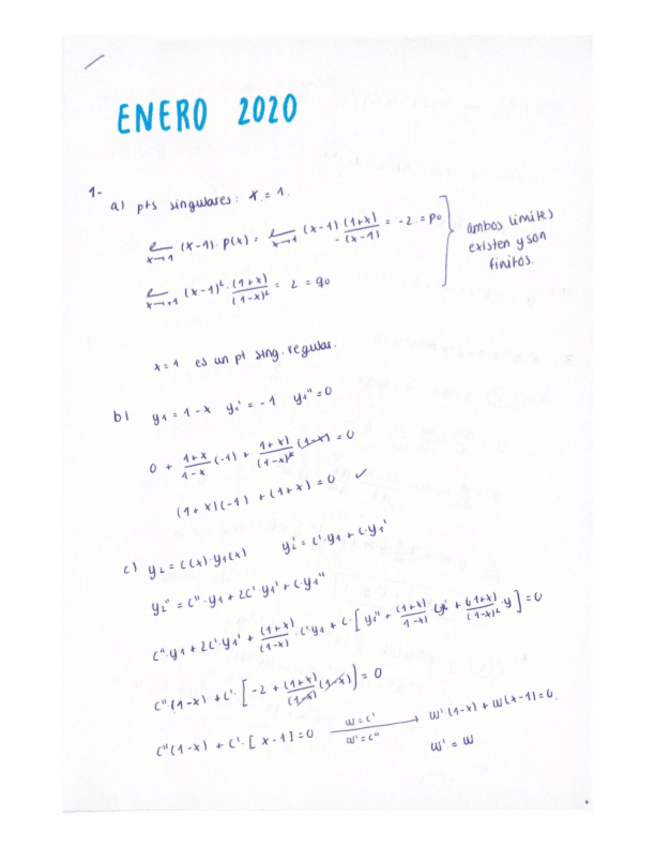 ENERO 2020
1-
a) pts singulares: x = 1.
l x→1 (x-1)·p(x) = l x→1 (x-1)·(1+x)/-(x-1) = -2 = p0
l x→1 (x-1)²·(1+x)/(1-x)² = 2 = q0
ambos límites
existen y son
finitos.
x=1 es un pt sing. regular.
b) y1 = 1-x y1' = -1 y1'' = 0
0 + 1+x/1-x (-1) + 1+x)/(1-x)² (1-x) = 0
(1+x)(-1) + (1+x) = 0 ✓
c) y2 = c(x)·y1(x) y2' = c'·y1 + c·y1'
y2'' = c''·y1 + 2c'·y1' + c·y1''
c''·y1 + 2c'·y1' + (1+x)/(1-x)·c'y1 + c·[y1'' + (1+x)/1-x) y' + (1+x)/(1-x)²·y] = 0
c''·(1-x) + c'·[-2 + (1+x)/(1-x)(1-x)] = 0
c''(1-x) + c'·[x-1] = 0 w=c' w'=c'' → w'·(1-x) + w(x-1) = 0.
w' = w